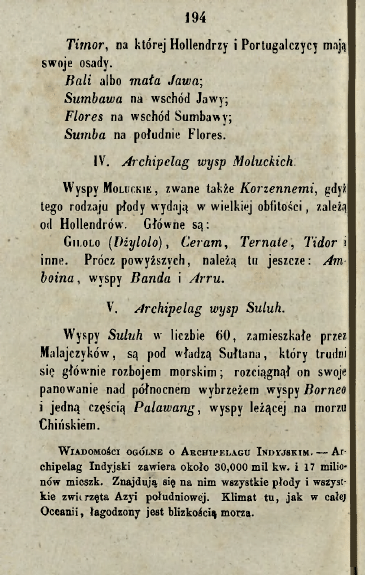 194
Timor, na której Hollendrzy i Portugalczycy mają
swoje osady.
Bali albo mała Jawa;
Sumbawa na wschód Jawy;
Flores na wschód Sumbawy;
Sumba na południe Flores.
IV. Archipelag wysp Moluckich.
Wyspy Moluckie, zwane także Korzennemi, gdyż
tego rodzaju płody wydają w wielkiej obfitości, zależą
od Hollendrów. Główne są:
Gilolo (Dżylolo), Ceram, Ternate, Tidor i
inne. Prócz powyższych, należą tu jeszcze: Am-
boina, wyspy Banda i Arru.
V. Archipelag wysp Suluh.
Wyspy Suluh w liczbie 60, zamieszkałe przez
Malajczyków, są pod władzą Sułtana, który trudni
się głównie rozbojem morskim; rozciągnął on swoje
panowanie nad północnem wybrzeżem wyspy Borneo
i jedną częścią Palawang, wyspy leżącej na morzu
Chińskiem.
Wiadomości ogólne o Archipelagu Indyjskim. — Ar-
chipelag Indyjski zawiera około 30,000 mil kw. i 17 milio-
nów mieszk. Znajdują się na nim wszystkie płody i wszyst-
kie zwierzęta Azyi południowej. Klimat tu, jak w całej
Oceanii, łagodzony jest blizkością morza.